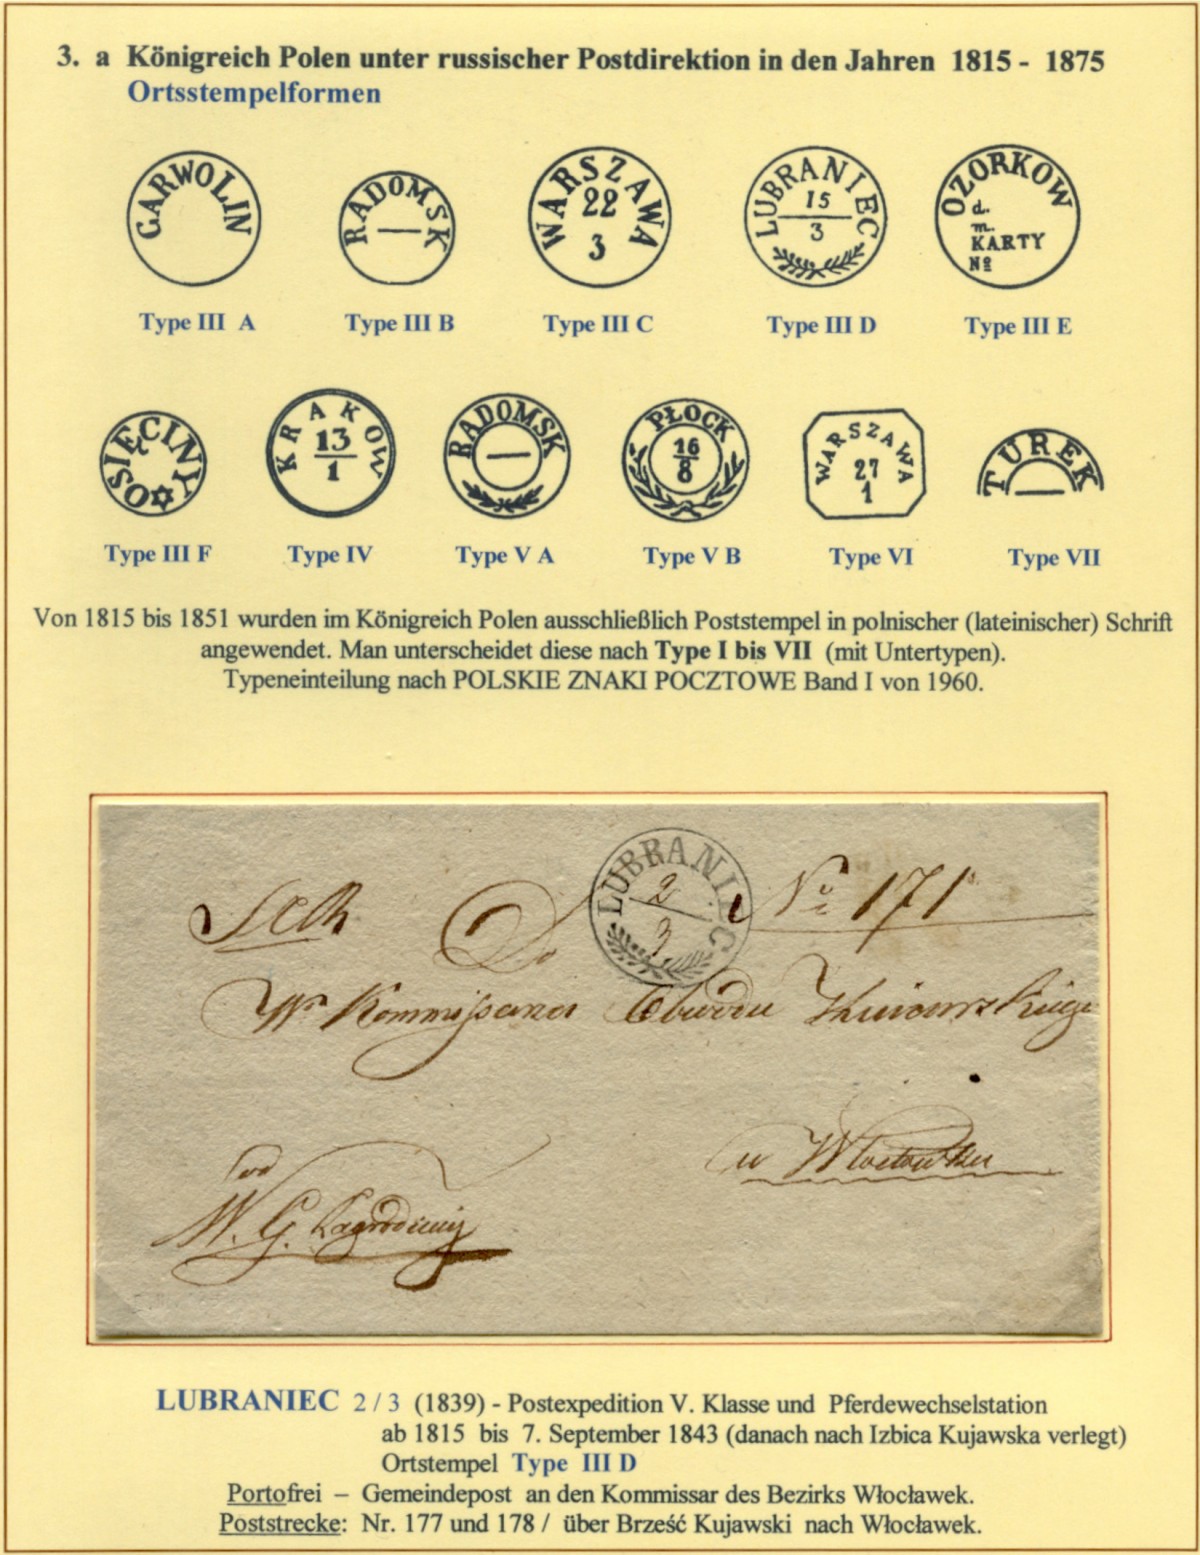 3. a Königreich Polen unter russischer Postdirektion in den Jahren 1815 - 1875
Ortsstempelformen
GARWOLIN
RADOMSK
WARSZAWA
22
3
LUBRANIEC
15
3
OZORKOW
d.
m.
KARTY
No
Type III A
Type III B
Type III C
Type III D
Type III E
OSIĘCINY
KRAKOW
13
1
RADOMSK
PŁOCK
16
8
WARSZAWA
27
1
TUREK
Type III F
Type IV
Type V A
Type V B
Type VI
Type VII
Von 1815 bis 1851 wurden im Königreich Polen ausschließlich Poststempel in polnischer (lateinischer) Schrift
angewendet. Man unterscheidet diese nach Type I bis VII (mit Untertypen).
Typeneinteilung nach POLSKIE ZNAKI POCZTOWE Band I von 1960.
LUBRANIEC
2
3
No 171
Do
W Kommissarza Obwodu Kuiawskiego
w Włocławku
od
W. G.
LUBRANIEC 2 / 3 (1839) - Postexpedition V. Klasse und Pferdewechselstation
ab 1815 bis 7. September 1843 (danach nach Izbica Kujawska verlegt)
Ortstempel Type III D
Portofrei – Gemeindepost an den Kommissar des Bezirks Włocławek.
Poststrecke: Nr. 177 und 178 / über Brześć Kujawski nach Włocławek.